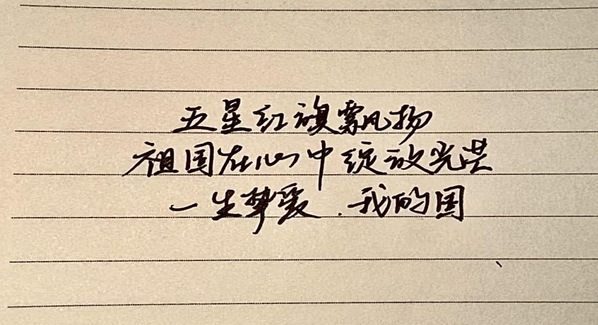 五星红旗飘扬
祖国在心中绽放光芒
一生挚爱.我的国